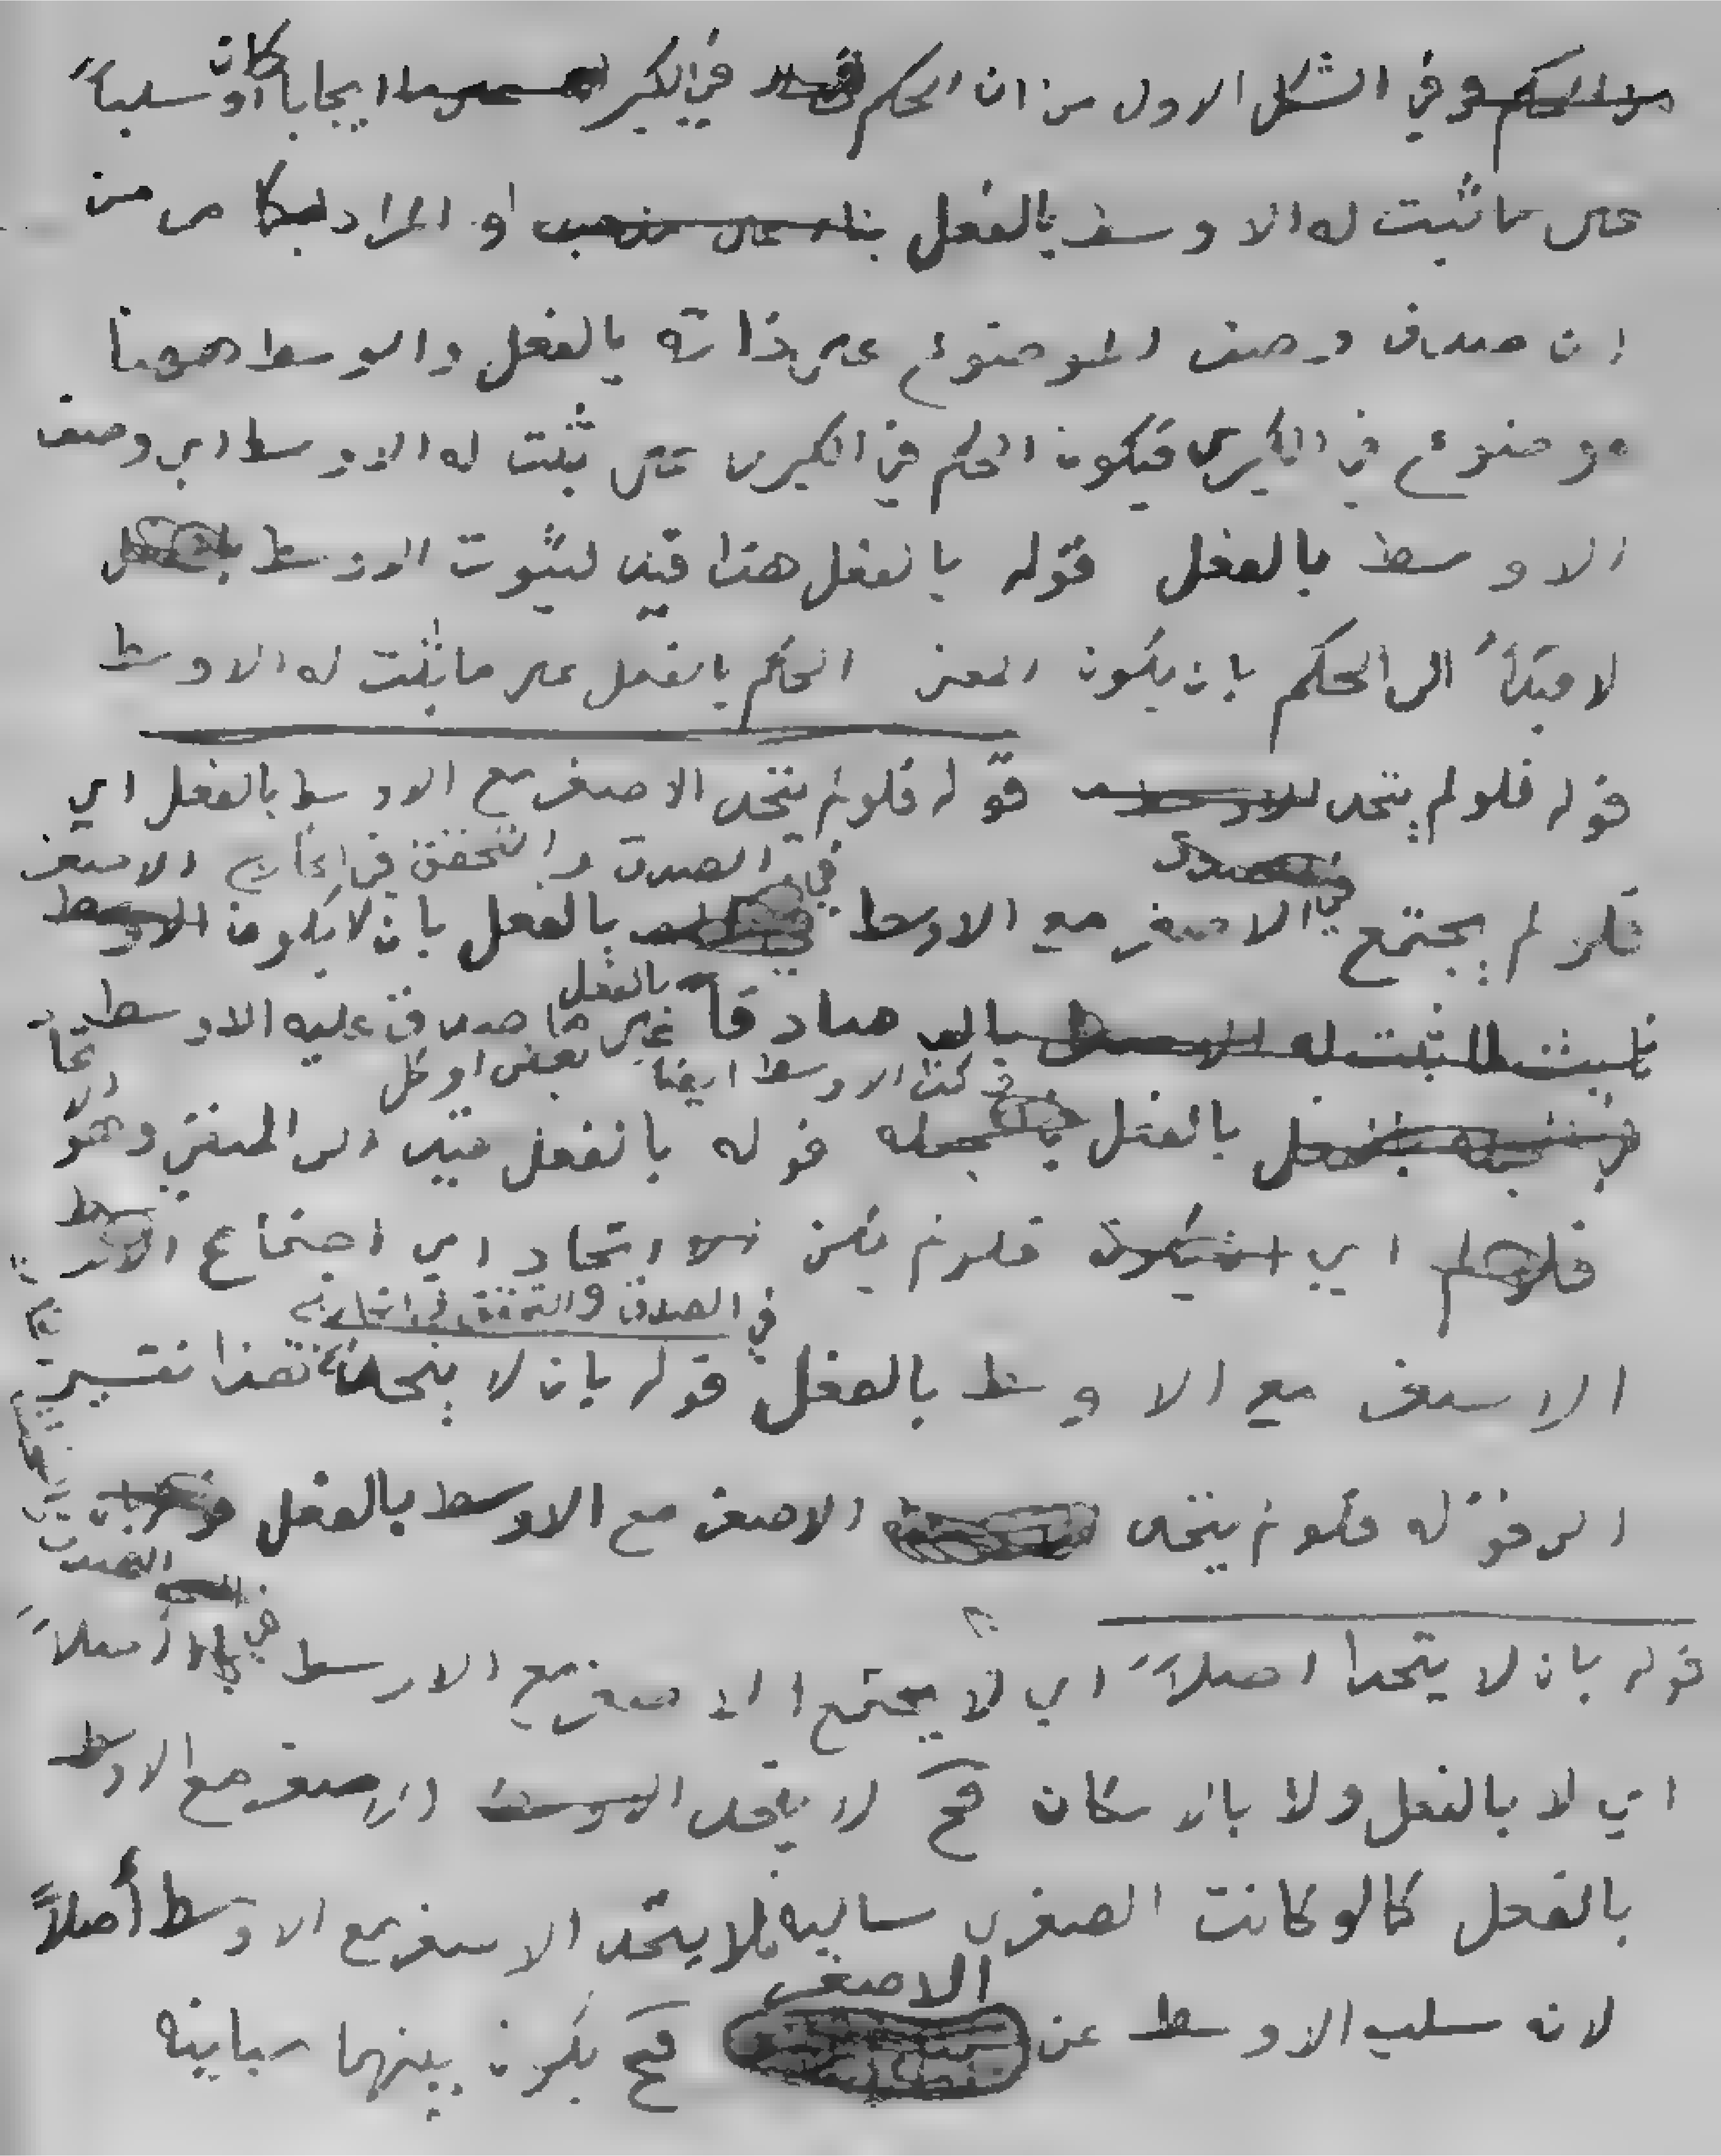 في الشكل الاول من ان الحكم في الكبرى ايجابا كان او سلباً
على ما ثبت له الاوسط بالفعل او المراد من
ان صدق وصف الموضوع على ذاته بالفعل والاوسط ههنا
موضوع في الكبرى فيكون الحكم في الكبرى على ثبت له الاوسط اي وصف
الاوسط بالفعل قوله بالفعل هذا قيد لثبوت الاوسط
لا قيداً الى الحكم بان يكون المعنى الحكم بالفعل على ما ثبت له الاوسط
قوله فلو لم يتحد قوله فلو لم يتحد الاصغر مع الاوسط بالفعل اي
في الصدق والتحقق في الخارج الاصغر
فلو لم يجتمع الاصغر مع الاوسط بالفعل بان لا يكون
بالفعل
صادقاً على ما صدق عليه الاوسط
الاوسط ايضا بعض او كل
بالفعل قوله بالفعل قيد الى المنفي وهو
فلو لم اي فلو لم يكن اتحاد اي اجتماع
في الصدق والتحقق في الخارج
الاصغر مع الاوسط بالفعل قوله بان لا يتحدا هذا تفسير
الى قوله فلو لم يتحد الاصغر مع الاوسط بالفعل
قوله بان لا يتحدا اصلاً اي لا يجتمع الاصغر مع الاوسط في الصدق اصلاً
اي لا بالفعل ولا بالامكان فح لا يتحد الاصغر مع الاوسط
بالفعل كما لو كانت الصغرى سالبه فلا يتحد الاصغر مع الاوسط أصلاً
الاصغر
لانه سلب الاوسط عن فح يكون بينهما مباينه